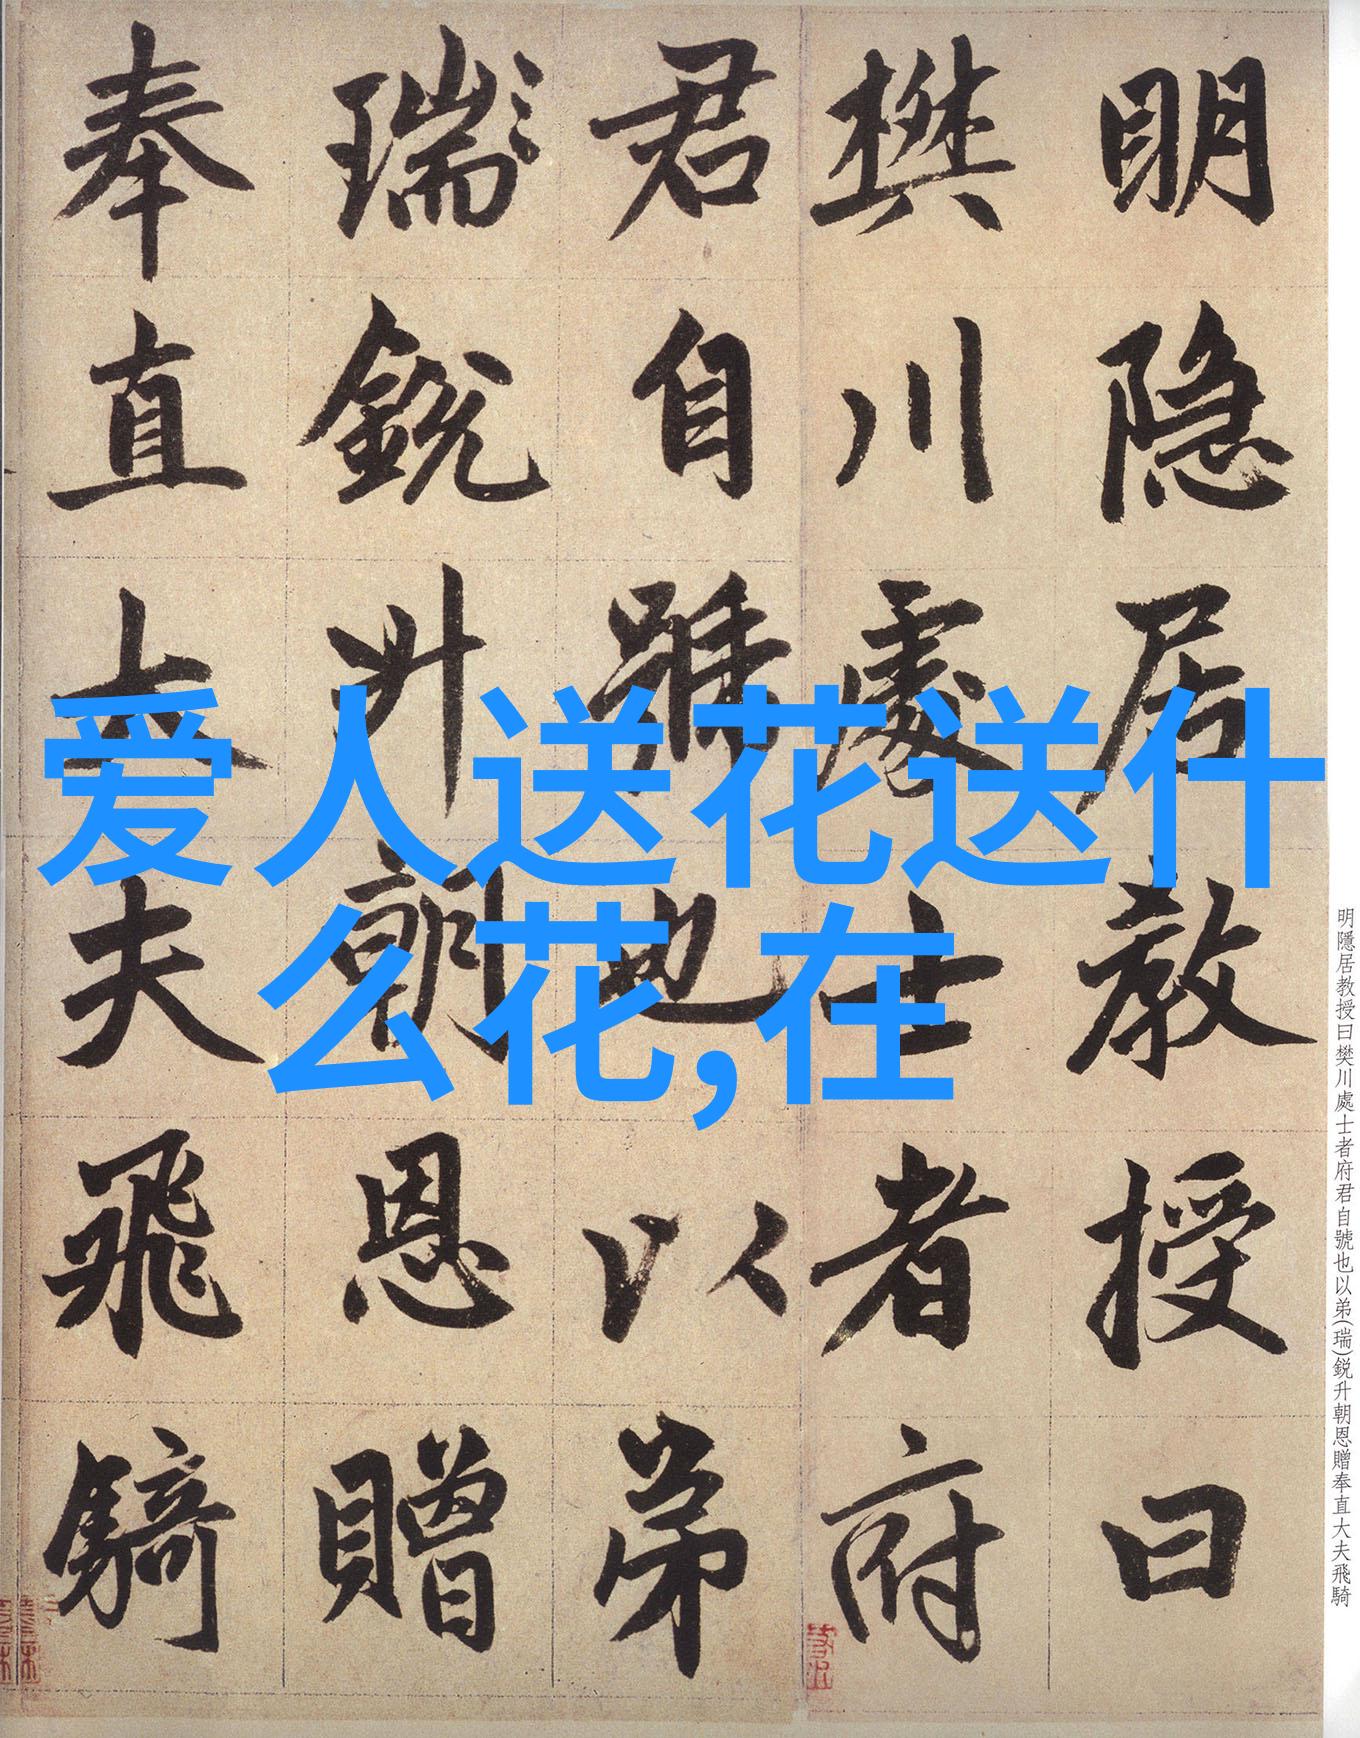 明隐居教授曰
樊川處士者府
君自號也以弟
瑞銳升朝恩贈
奉直大夫飛騎
爱人送花送什
么花,在
明隱居教授曰樊川處士者府君自號也以弟(瑞)鋭升朝恩贈奉直大夫飛騎